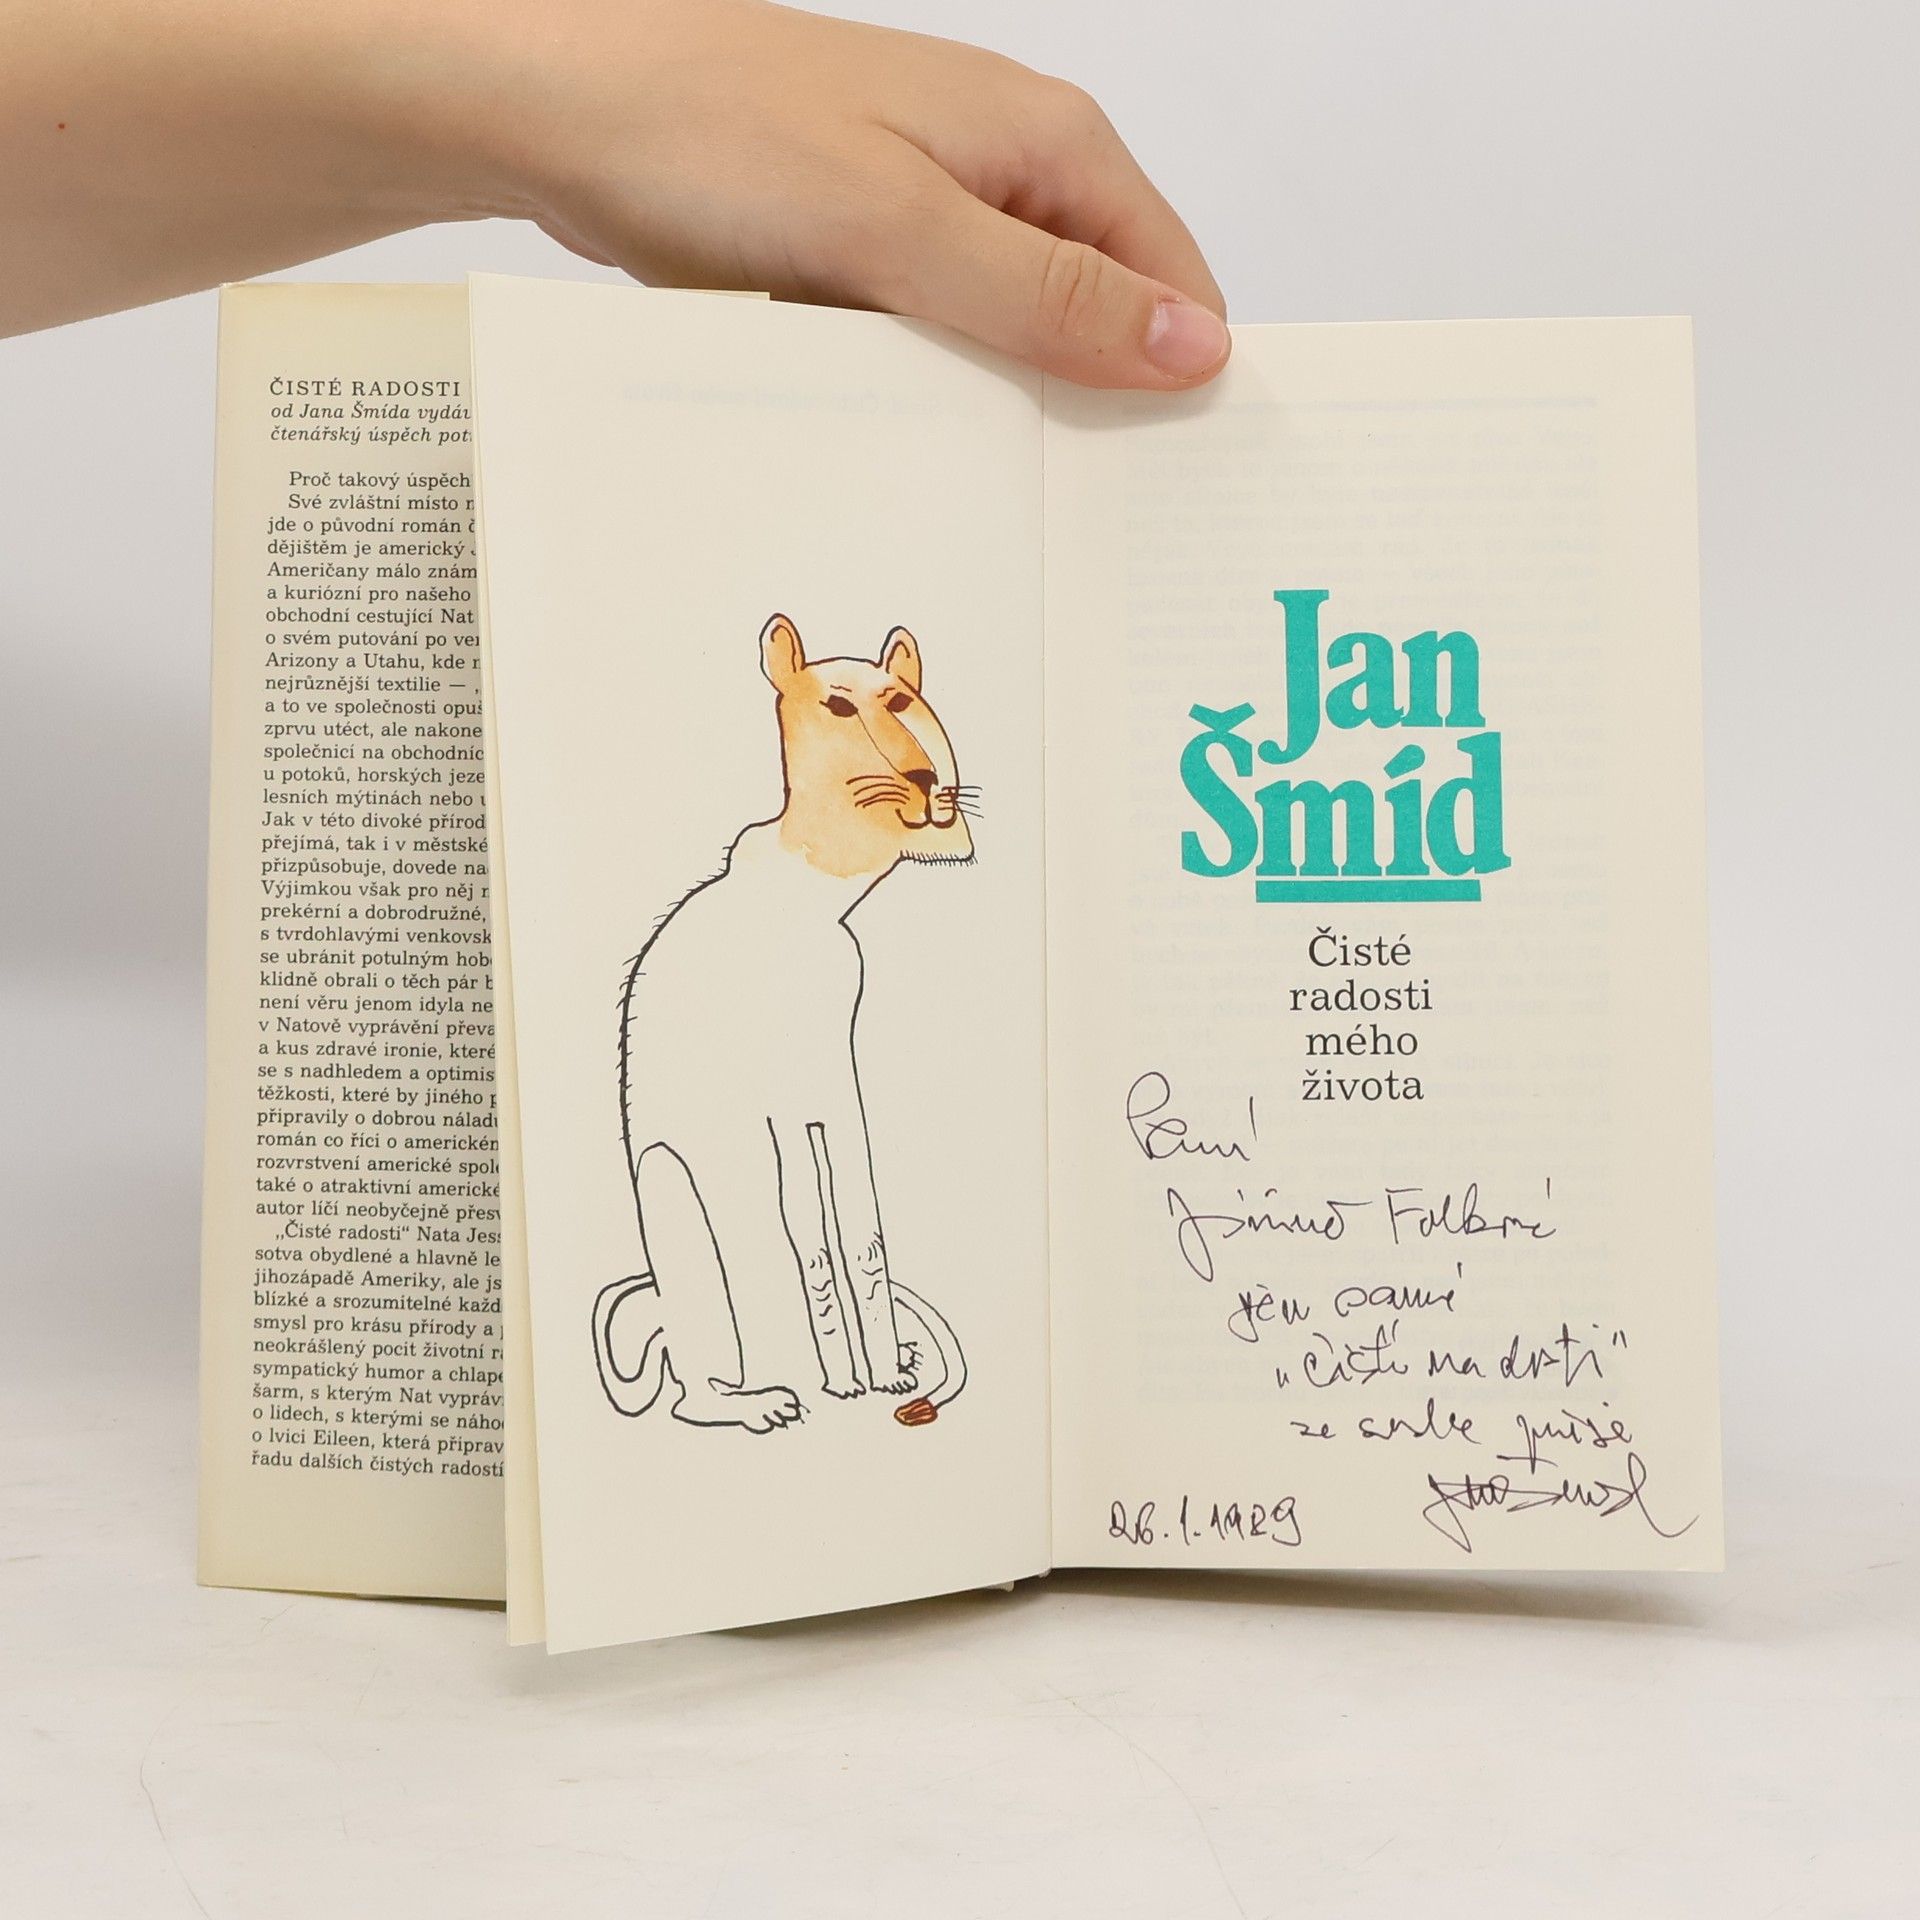 ČISTÉ RADOSTI
od Jana Šmída vydáv
čtenářský úspěch pot
Proč takový úspěch
Své zvláštní místo
jde o původní román
dějištěm je americký
Američany málo znám
a kuriózní pro našeho
obchodní cestující Nat
o svém putování po ve
Arizony a Utahu, kde
nejrůznější textilie — „
a to ve společnosti opuš
zprvu utéct, ale nakone
společnicí na obchodníc
u potoků, horských jeze
lesních mýtinách nebo
Jak v této divoké přírod
přejímá, tak i v městské
přizpůsobuje, dovede na
Výjimkou však pro něj
prekérní a dobrodružné,
s tvrdohlavými venkovsk
se ubránit potulným hob
klidně obrali o těch pár b
není věru jenom idyla ne
v Natově vyprávění převa
a kus zdravé ironie, které
se s nadhledem a optimis
těžkosti, které by jiného p
připravily o dobrou nálad
román co říci o americkém
rozvrstvení americké spole
také o atraktivní americké
autor líčí neobyčejně přesv
„Čisté radosti“ Nata Jes
sotva obydlené a hlavně le
jihozápadě Ameriky, ale js
blízké a srozumitelné každ
smysl pro krásu přírody a
neokrášlený pocit životní r
sympatický humor a chlap
šarm, s kterým Nat vypráv
o lidech, s kterými se náho
o lvici Eileen, která připrav
řadu dalších čistých radostí
Jan
Šmíd
Čisté
radosti
mého
života
Paní
Folkové
jen samé
„čisté radosti“
ze srdce přeje
26. 1. 1989